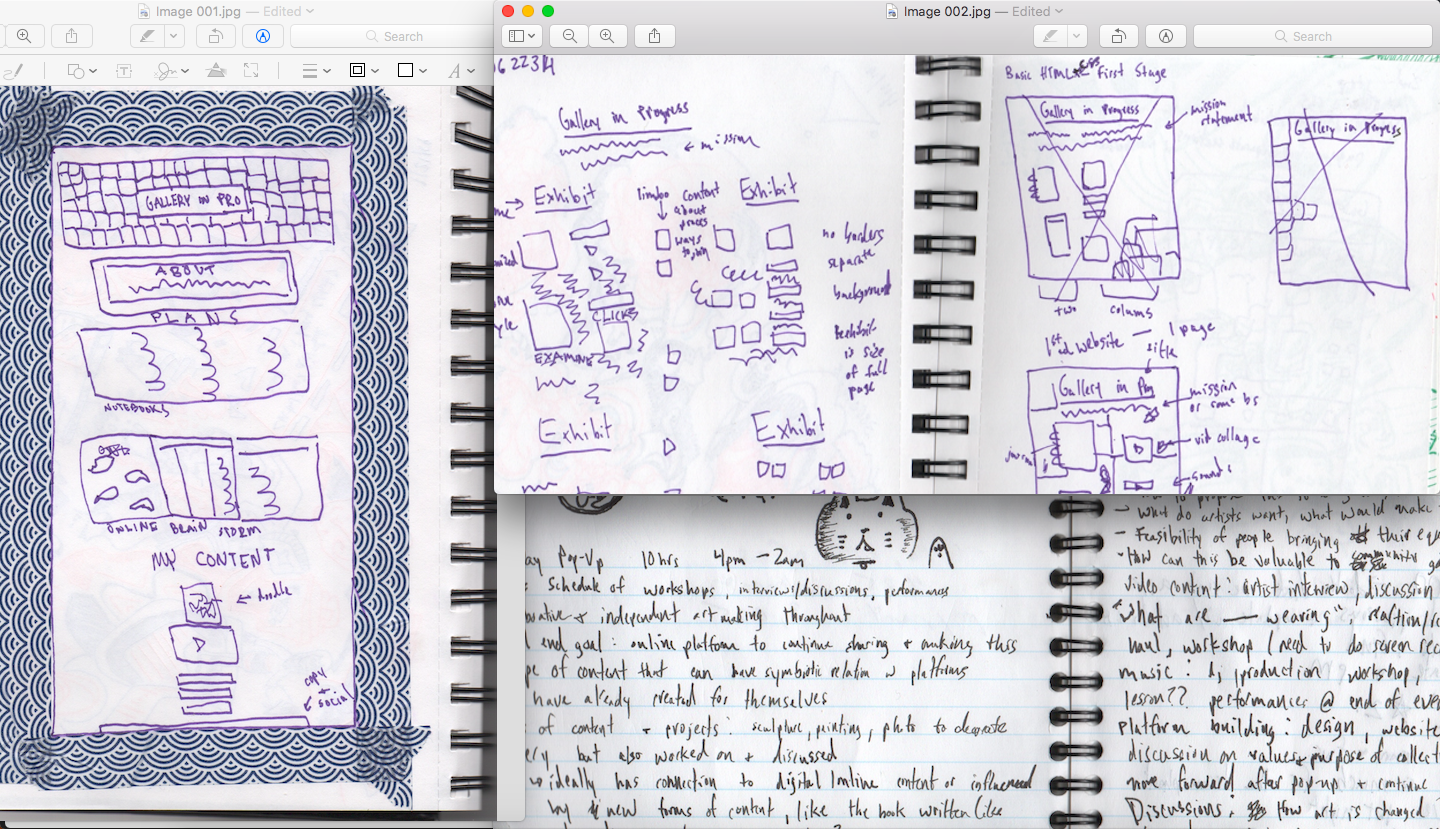 Image 001.jpg — Edited
Search
GALLERY IN PRO
ABOUT
PLANS
NOTEBOOKS
ONLINE BRAIN STORM
MY CONTENT
← doodle
COPY
+
SOCIAL
Image 002.jpg — Edited
Search
Gallery in Progress
← mission
→ Exhibit
limbo
content
about
process
ways
to join
Exhibit
no borders
separate
background
CLICKS
EXAMINE
Exhibit
is size
of full
page
Exhibit
Exhibit
Basic HTML + CSS First Stage
Gallery in Progress
mission
statement
two colums
Gallery in Progress
1st website — 1 page
title
Gallery in Pro
mission
or some bs
vid collage
sounds
Pop-Up 10 hrs 4pm — 2am
schedule of workshops, interviews/discussions, performances
+ independent art making throughout
end goal: online platform to continue sharing + making this
of content that can have symbiotic relation w platforms
have already created for themselves
of content + projects: sculpture, painting, photo to decorate
but also worked on + discussed
→ ideally has connection to digital/online content or influenced
by new forms of content, like the book written like
- what do artists want, what would make
- Feasibility of people bringing their equ
"How can this be valuable to community
video content: artist interview, discussion
"What are — wearing",
haul, workshop (need to do screen rec
music: dj, production workshop,
lesson?? performances @ end of eve
platform building: design, website
discussion on values + purpose of collect
move forward after pop-up + continue
Discussions: How art is changed